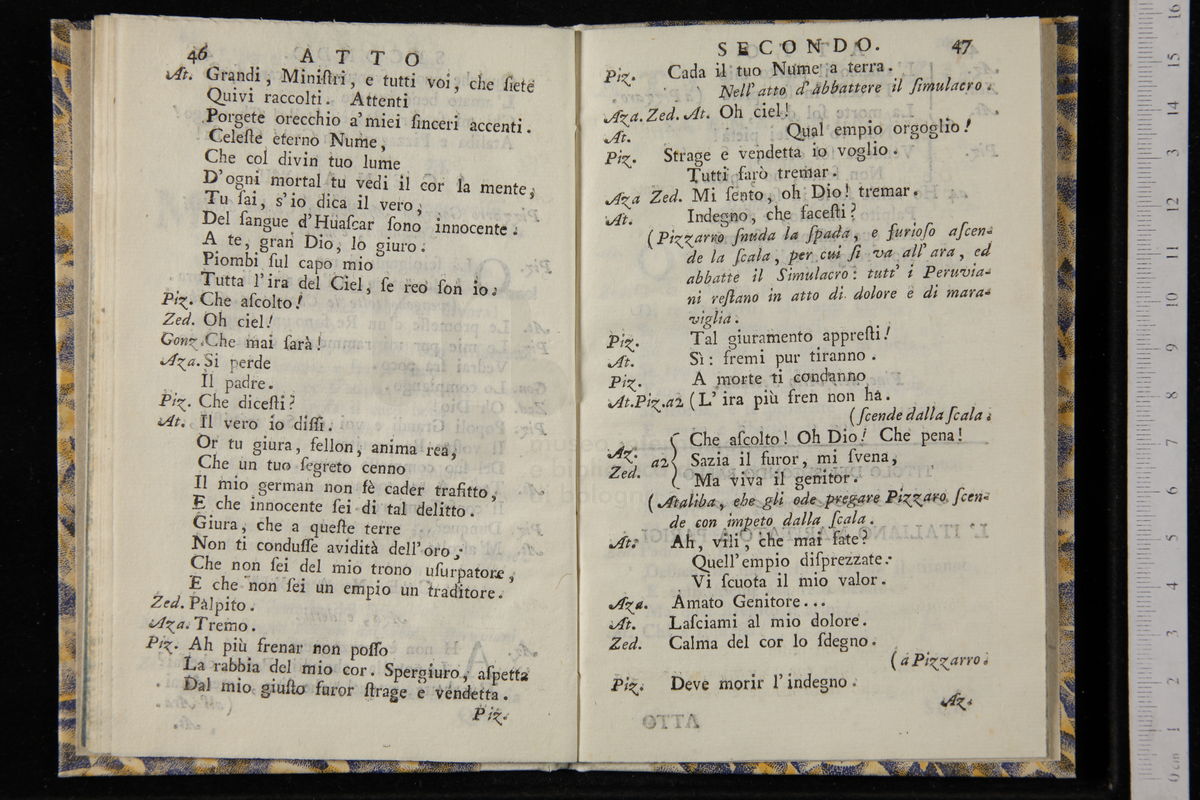 46 ATTO
At. Grandi, Miniſtri, e tutti voi, che ſiete
Quivi raccolti. Attenti
Porgete orecchio a' miei ſinceri accenti.
Celeſte eterno Nume,
Che col divin tuo lume
D'ogni mortal tu vedi il cor la mente,
Tu ſai, s'io dica il vero,
Del ſangue d'Huaſcar ſono innocente.
A te, gran Dio, lo giuro.
Piombi ſul capo mio
Tutta l'ira del Ciel, ſe reo ſon io.
Piz. Che aſcolto!
Zed. Oh ciel!
Gonz. Che mai ſarà!
Aza. Si perde
Il padre.
Piz. Che diceſti?
At. Il vero io diſſi.
Or tu giura, fellon, anima rea,
Che un tuo ſegreto cenno
Il mio german non fè cader trafitto,
E che innocente ſei di tal delitto.
Giura, che a queſte terre
Non ti conduſſe avidità dell'oro;
Che non ſei del mio trono uſurpatore,
E che non ſei un empio un traditore.
Zed. Palpito.
Aza. Tremo.
Piz. Ah più frenar non poſſo
La rabbia del mio cor. Spergiuro, aſpetta
Dal mio giuſto furor ſtrage e vendetta.
Piz.
SECONDO. 47
Piz. Cada il tuo Nume a terra.
Nell'atto d'abbattere il ſimulacro.
Aza. Zed. At. Oh ciel!
At. Qual empio orgoglio!
Piz. Strage e vendetta io voglio.
Tutti farò tremar.
Aza Zed. Mi ſento, oh Dio! tremar.
At. Indegno, che faceſti?
(Pizzarro ſnuda la ſpada, e furioſo aſcen-
de la ſcala, per cui ſi va all'ara, ed
abbatte il Simulacro: tutt' i Peruvia-
ni reſtano in atto di dolore e di mara-
viglia.
Piz. Tal giuramento appreſti!
At. Sì: fremi pur tiranno.
Piz. A morte ti condanno
At. Piz. a2 (L' ira più fren non ha.
(ſcende dalla ſcala.
Az. Zed. a2 { Che aſcolto! Oh Dio! Che pena!
Sazia il furor, mi ſvena,
Ma viva il genitor.
(Ataliba, che gli ode pregare Pizzaro ſcen-
de con impeto dalla ſcala.
At. Ah, vili, che mai fate?
Quell'empio diſprezzate:
Vi ſcuota il mio valor.
Aza. Amato Genitore...
At. Laſciami al mio dolore.
Zed. Calma del cor lo ſdegno.
(a Pizzarro.
Piz. Deve morir l'indegno.
Az.